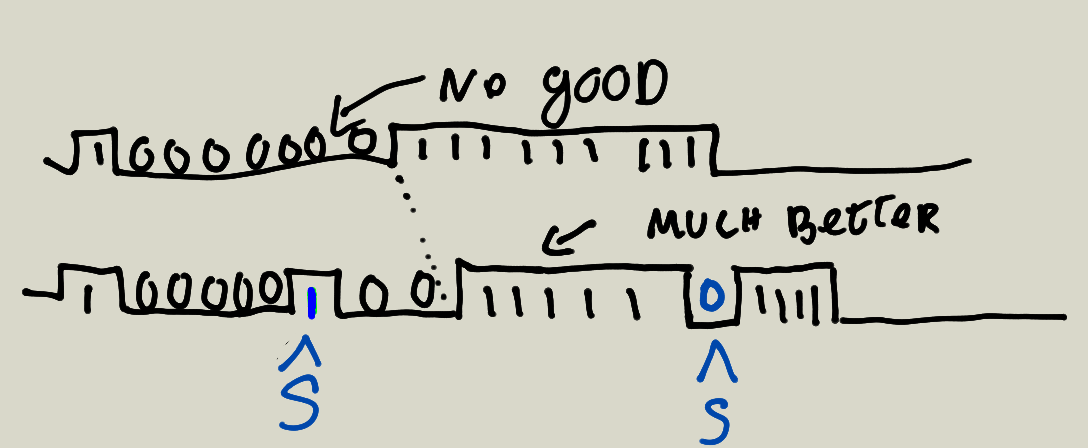 NO GOOD
1 0 0 0 0 0 0 0 1 1 1 1 1 1 1 1 1
MUCH BETTER
1 0 0 0 0 0 1 0 0 1 1 1 1 1 0 1 1 1 1
^ ^
S S